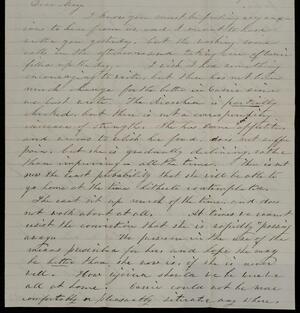 Dear Mary
I know you must be feeling very anx-
ious to hear from us, and I meant to have
written you yesterday, but the washing, some
calls in the afternoon and taking care of Carrie
filled up the day. I wish I had something
encouraging to write, but there has not been
much change for the better in Carrie since
we last wrote. The diarrhea is partially
checked, but there is not a corresponding
increase of strength. She has some appetite,
and seems to relish her food, does not suffer
pain, but she is gradually declining, rather
than improving all the time. There is not
now the least probability that she will be able to
go home at the time hitherto contemplated.
She cant sit up much of the time, and does
not walk about at all. At times we cannot
resist the conviction that she is rapidly passing
away. We persevere in the use of the
means prescribed for her, and hope she may
be better than she now is, if she is never
well. How rejoiced should we be were we
all at home. Carrie could not be more
comfortably or pleasantly situated any where.